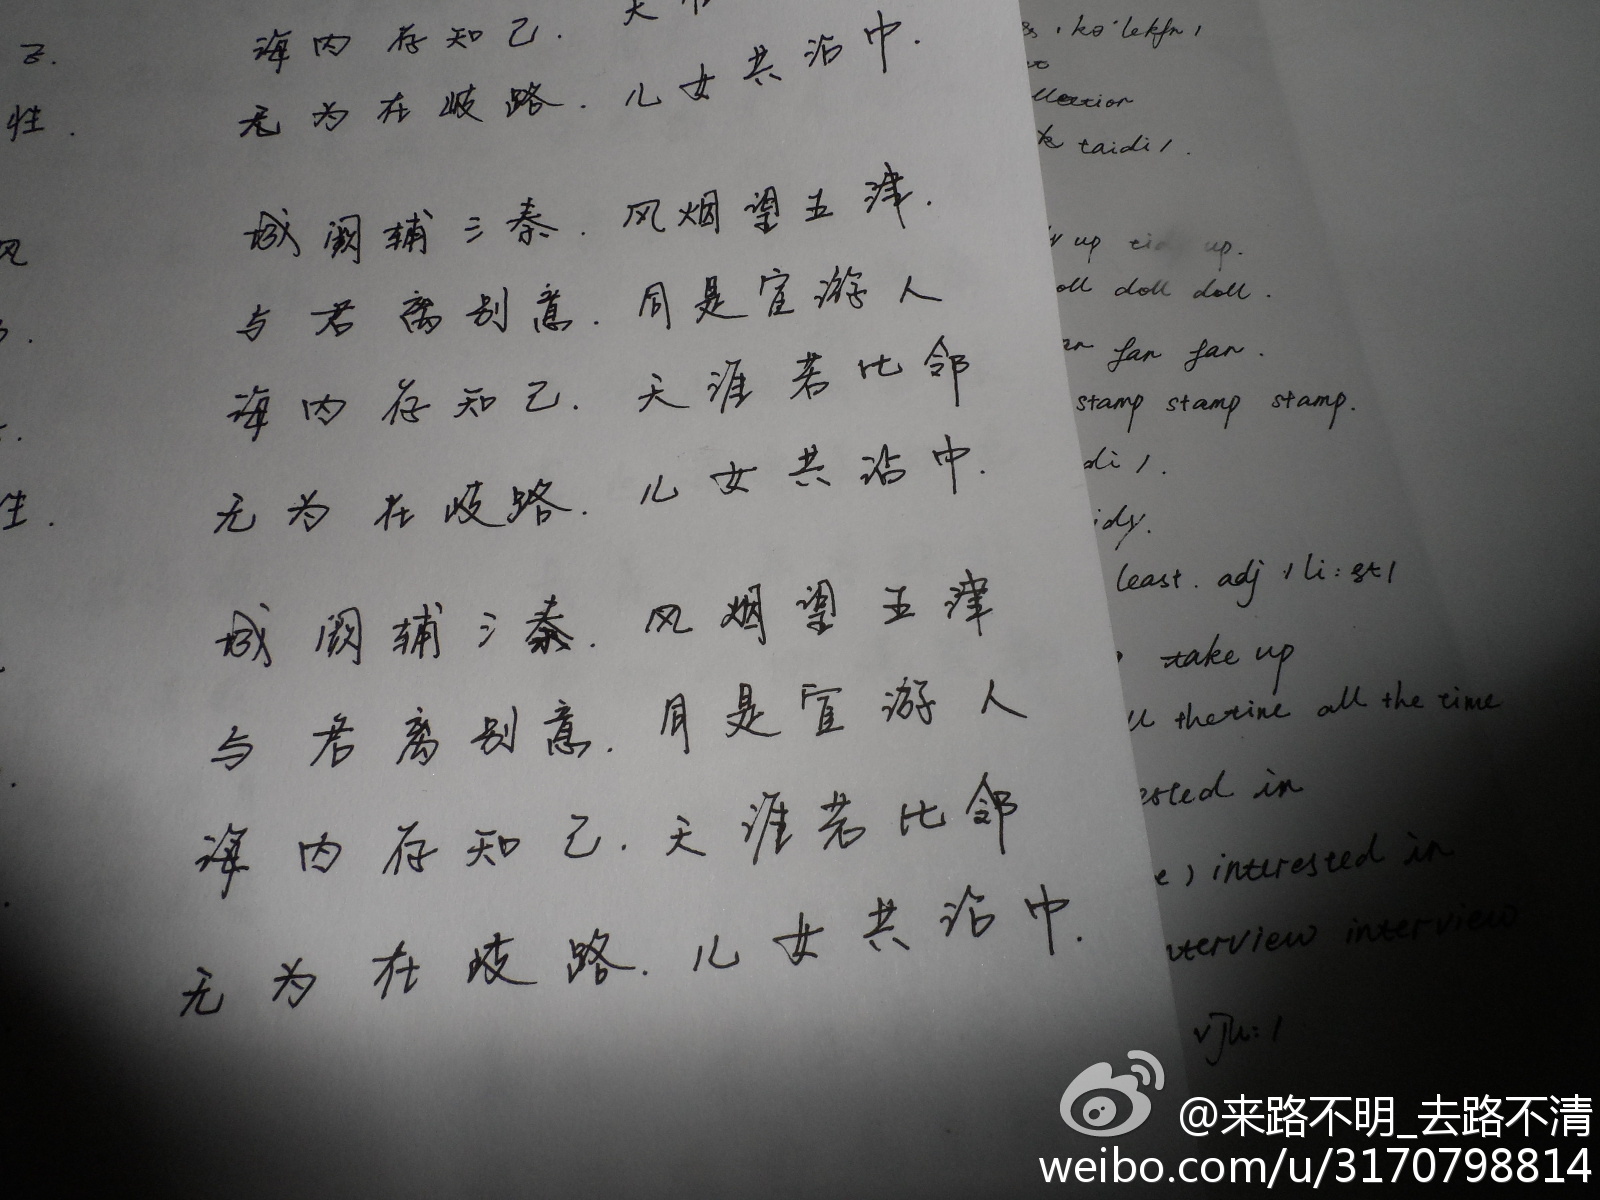 海内存知己.
无为在歧路.儿女共沾中.
城阙辅三秦.风烟望五津.
与君离别意.同是宦游人
海内存知己.天涯若比邻
无为在歧路.儿女共沾巾.
城阙辅三秦.风烟望五津
与君离别意.同是宦游人
海内存知己.天涯若比邻
无为在歧路.儿女共沾巾.
性.
风
生.
taidi/.
up tidy up.
doll doll.
fan fan.
stamp stamp stamp.
least. adj /li:st/
take up
the time all the time
in
interested in
interview
@来路不明_去路不清
weibo.com/u/3170798814